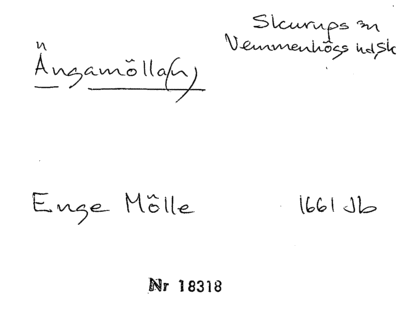 Skurups sn
Vemmenhögs hd Sk
Ängamölla(n)
Enge Mölle 1661 Jb
Nr 18318